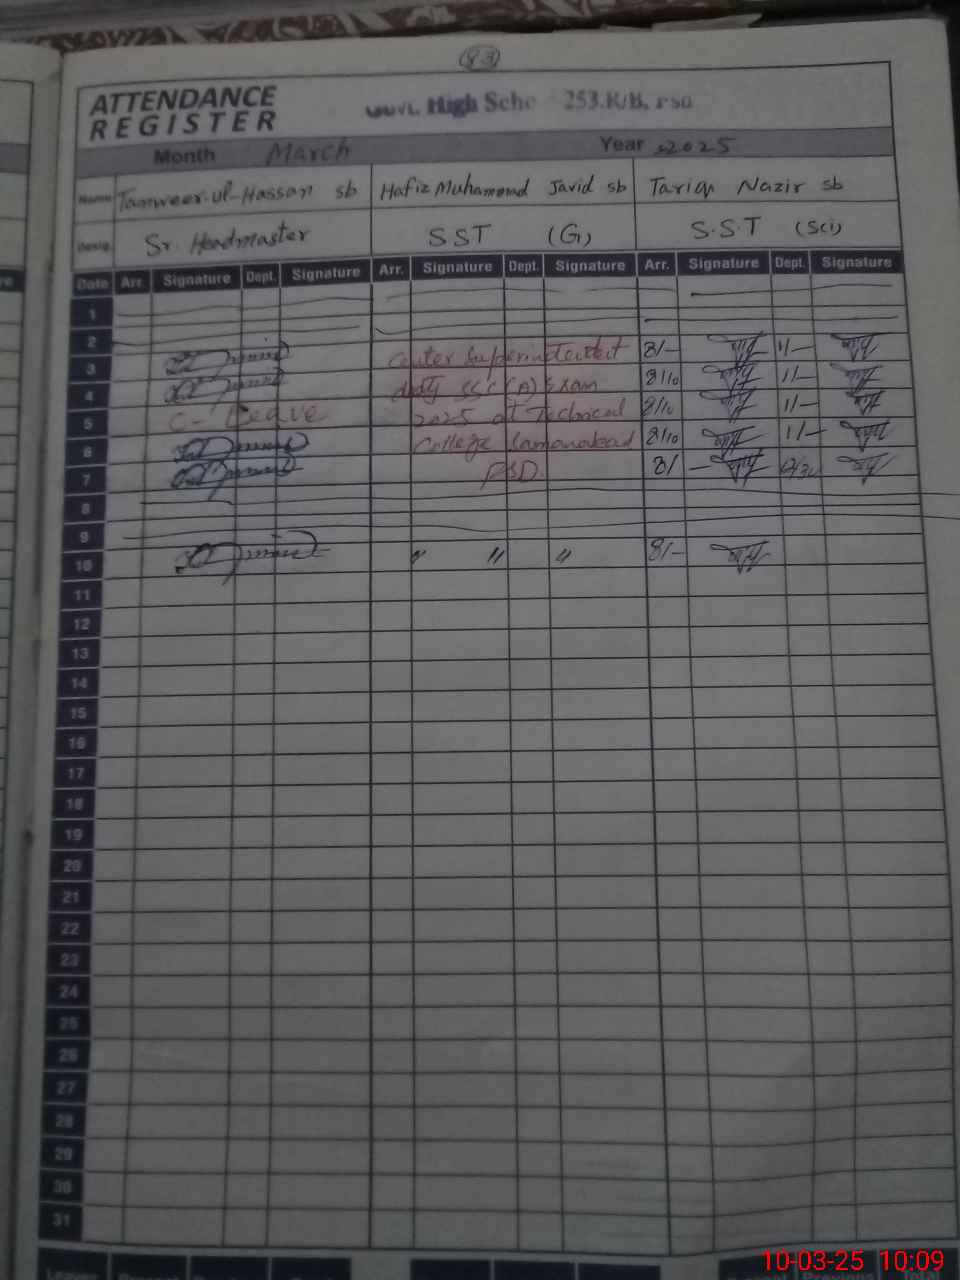 83
ATTENDANCE
REGISTER
Govt. High Scho 253.R/B, FSD
Month March Year 2025
Name Tanweer-ul-Hassan sb Hafiz Muhammad Javid sb Tariq Nazir sb
Desig. Sr. Headmaster SST (G) S.S.T (Sci)
Date Arr. Signature Dept. Signature Arr. Signature Dept. Signature Arr. Signature Dept. Signature
1
2
3 Center Superintendent 8/- 1/-
4 duty SSC (A) Exam 8/10 1/-
5 C- Leave 2025 at Technical 8/10 1/-
6 College Samanabad 8/10 1/-
7 FSD. 8/- 12/30
8
9
10 " " " 8/-
11
12
13
14
15
16
17
18
19
20
21
22
23
24
25
26
27
28
29
30
31
10-03-25 10:09